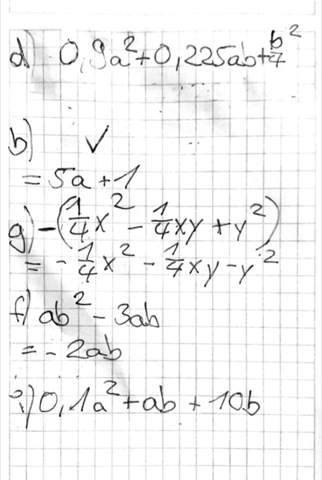 d) 0,9a²+0,225ab+b²/4
b) ✓
= 5a+1
g) -(1/4x² - 1/4xy + y²)
= - 1/4x² - 1/4xy - y²
f) ab² - 3ab
= - 2ab
) 0,1a²+ab + 10b